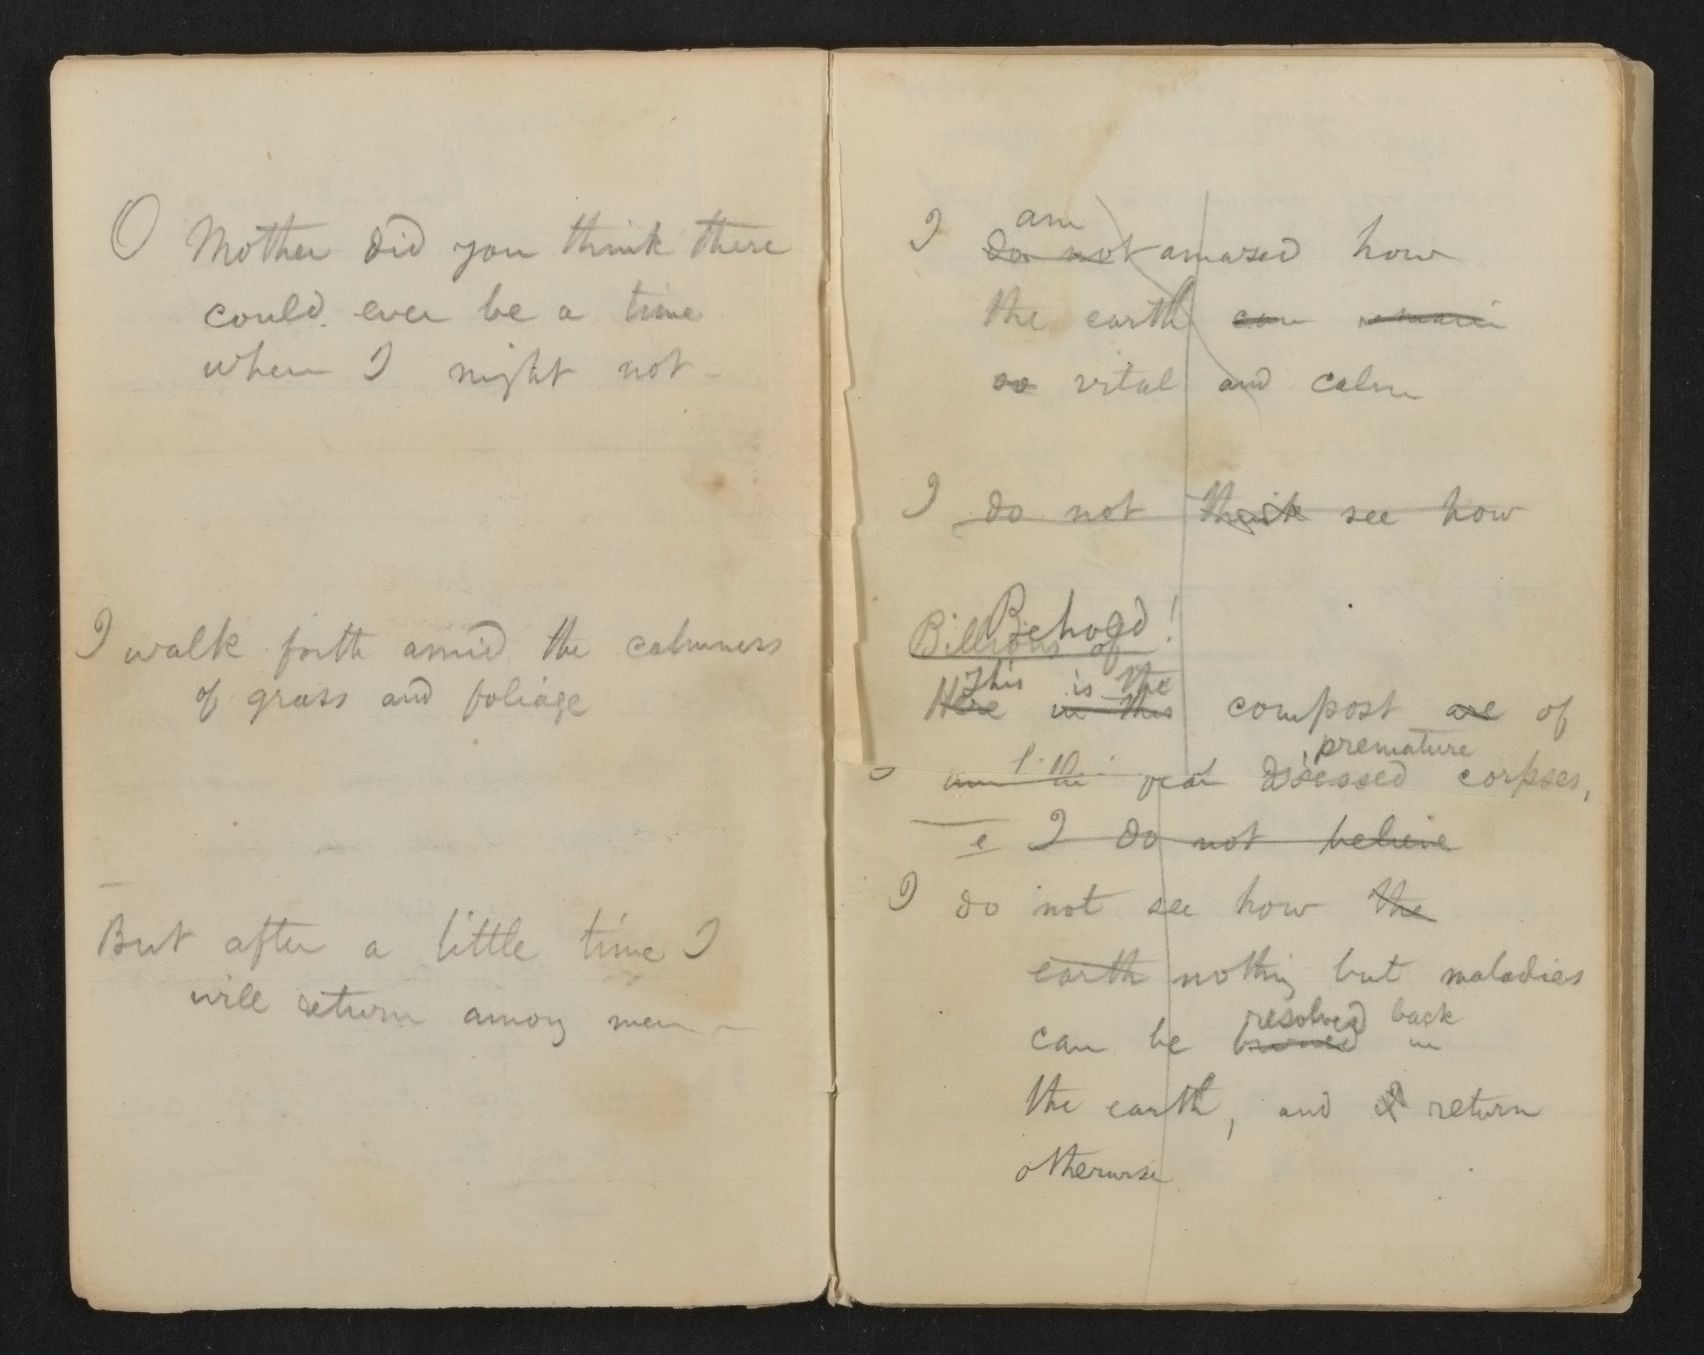 O Mother did you think there
could ever be a time
when I might not
I walk forth amid the calmness
of grass and foliage
But after a little time I
will return among men
am
I do not amazed how
the earth can remain
so vital and calm
I do not think see how
Behold!
Billions of
This is the
Here in this compost are of
premature
diseased corpses,
e I do not believe
I do not see how the
earth nothing but maladies
resolved back
can be in
the earth, and return
otherwise